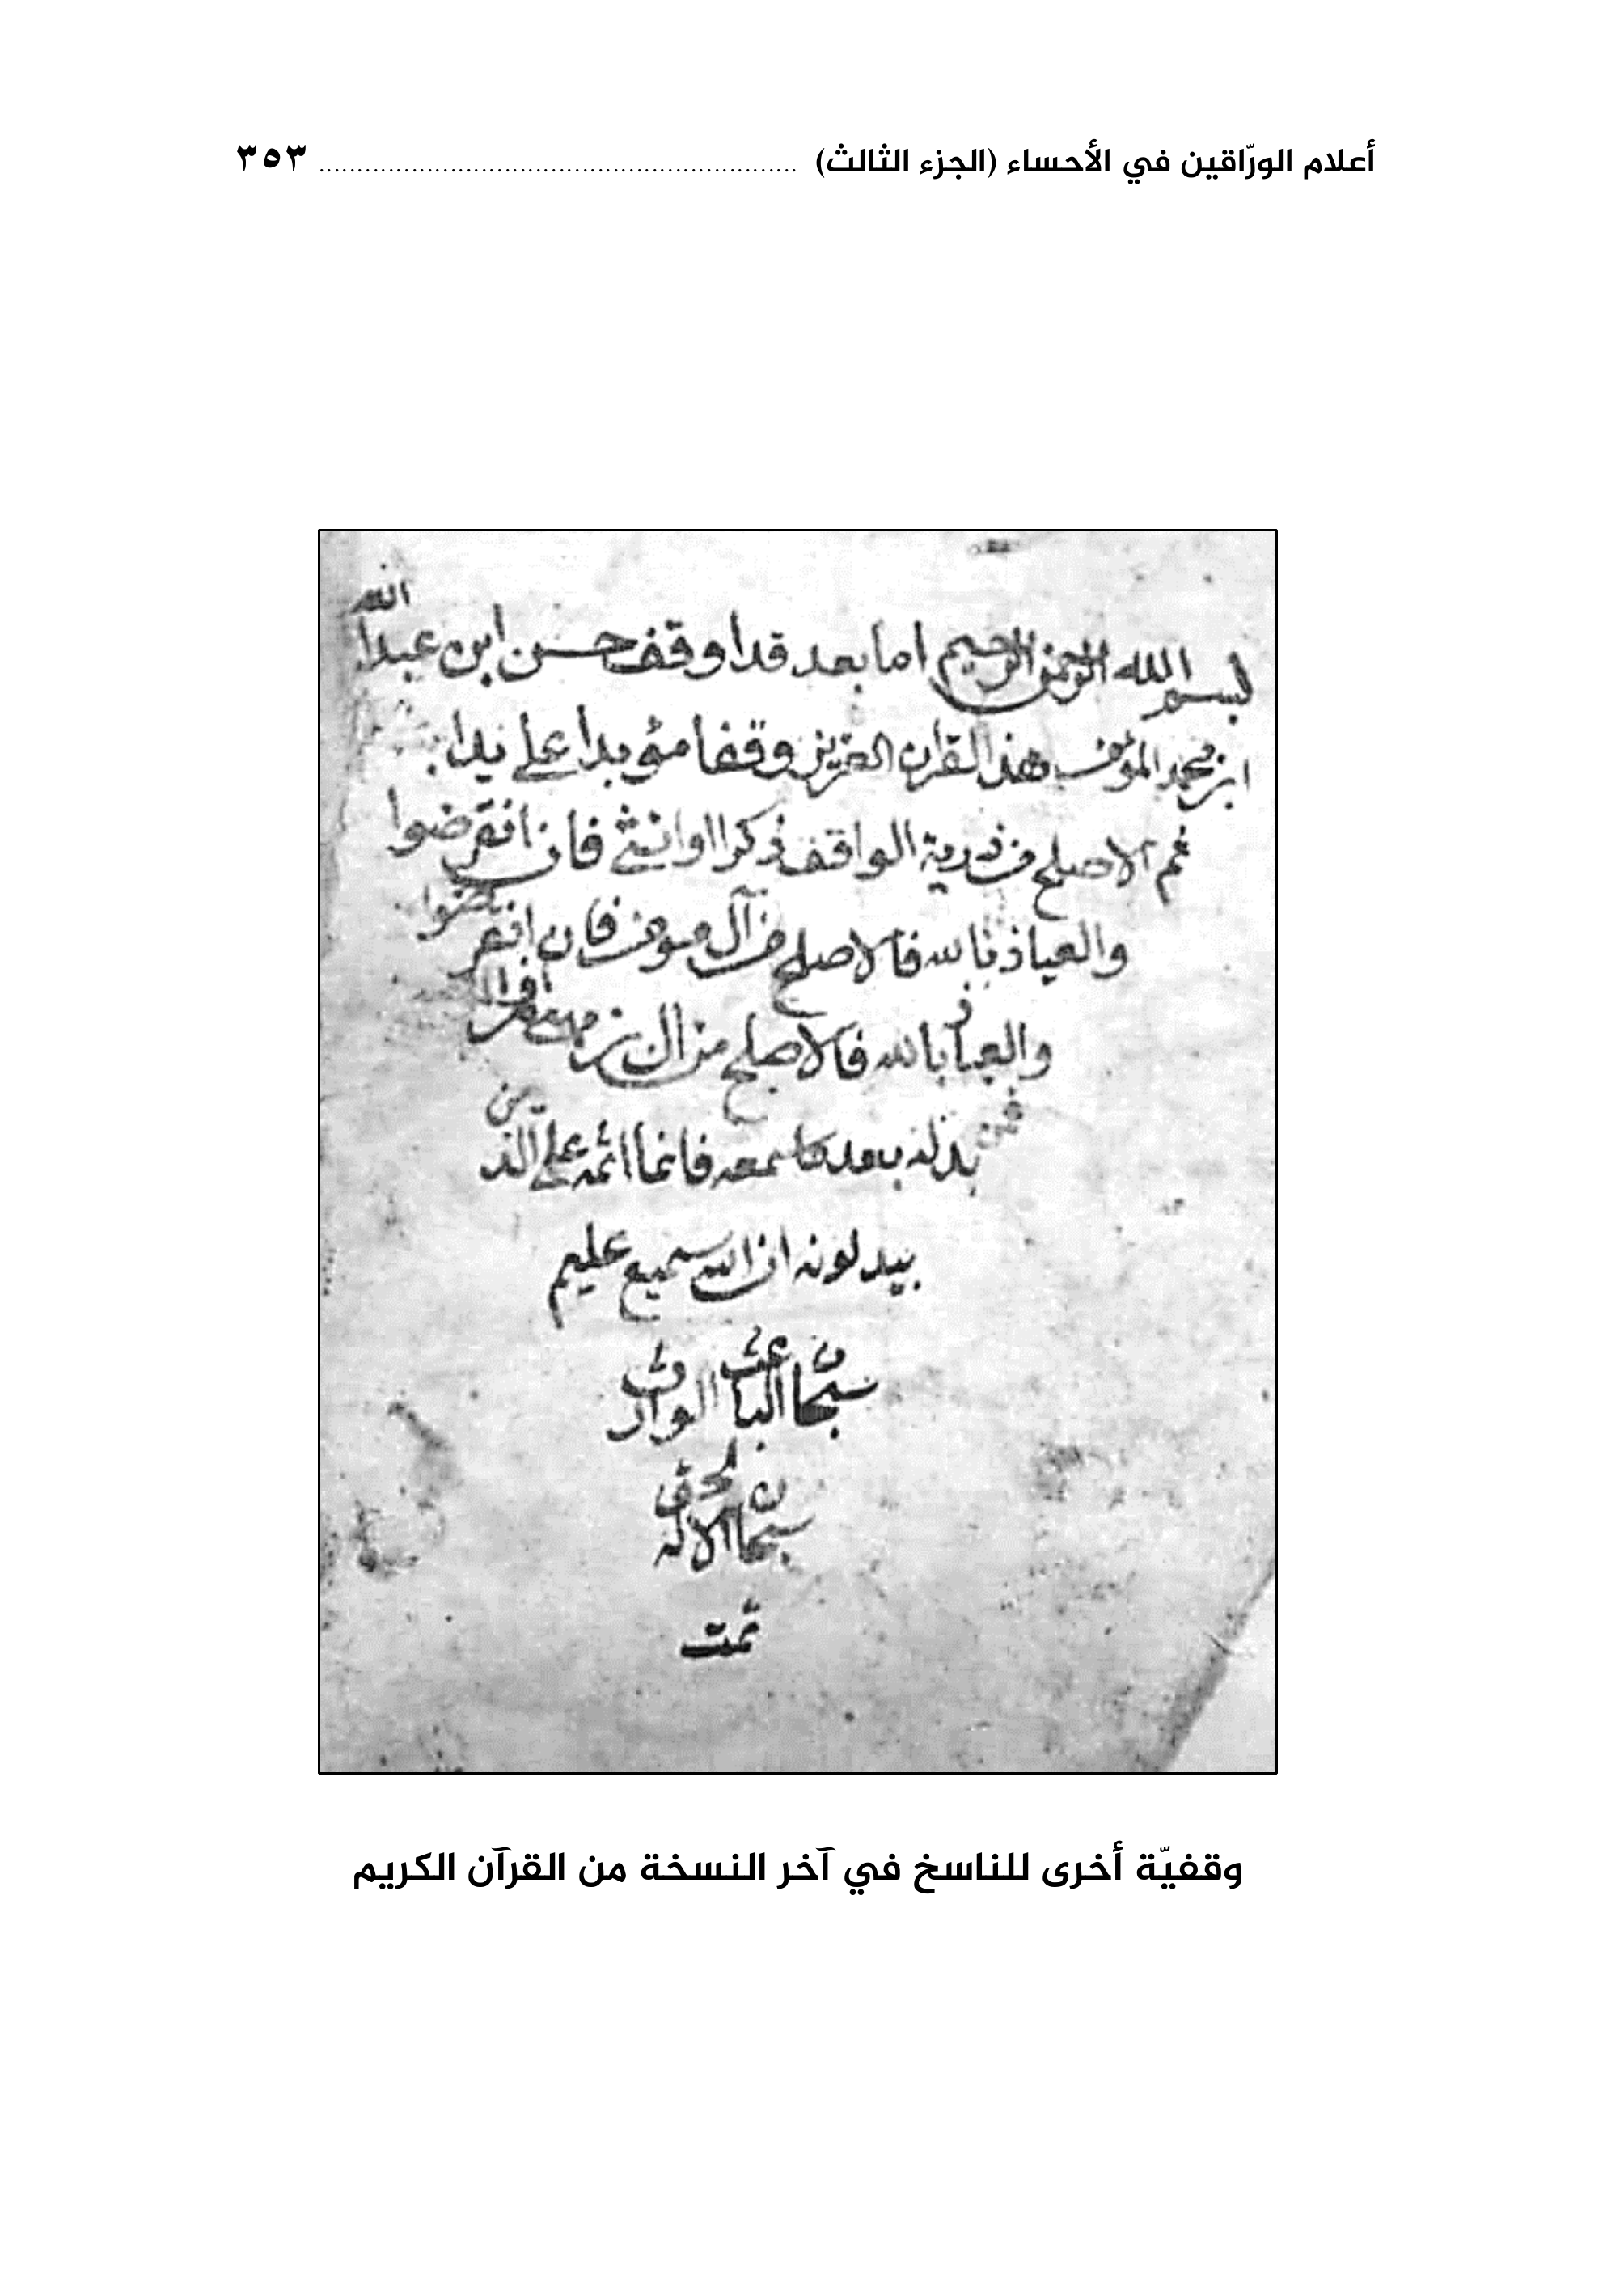 أعلام الورّاقين في الأحساء (الجزء الثالث) ........................................................ ٣٥٣
بسم الله الرحمن الرحيم اما بعد قد اوقف حسن ابن عبدالله
ابن محمد هذا القران العزيز وقفا مؤبدا على يد
ثم الاصلح من ذرية الواقف ذكرا او انثى فان انقرضوا
والعياذ بالله فالاصلح من آل فان انقرضوا
والعياذ بالله فالاصلح من ال
فمن بدله بعدما سمعه فانما اثمه على الذين
يبدلونه ان الله سميع عليم
سبحان الباعث الوارث
سبحان الاله
تمت
وقفيّة أخرى للناسخ في آخر النسخة من القرآن الكريم